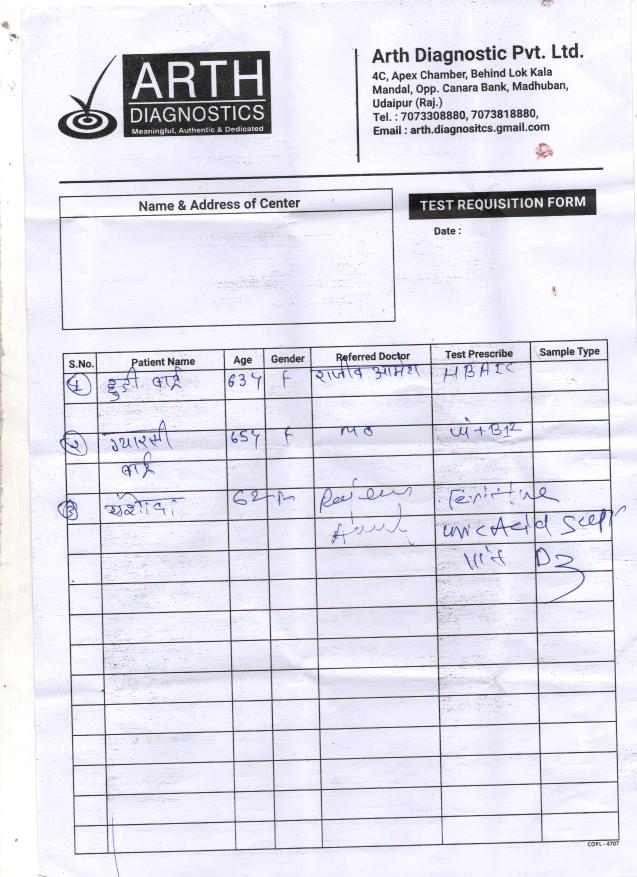 ARTH
DIAGNOSTICS
Meaningful, Authentic & Dedicated
Arth Diagnostic Pvt. Ltd.
4C, Apex Chamber, Behind Lok Kala
Mandal, Opp. Canara Bank, Madhuban,
Udaipur (Raj.)
Tel. : 7073308880, 7073818880,
Email : arth.diagnositcs.gmail.com
Name & Address of Center
TEST REQUISITION FORM
Date :
S.No. Patient Name Age Gender Referred Doctor Test Prescribe Sample Type
1 बाई 63y F राजीव आमेटा HBA1C
2 ग्यारसी 65y F B12
बाई
3 यशोदा 62
Uric Acid
D3
COPL - 4707